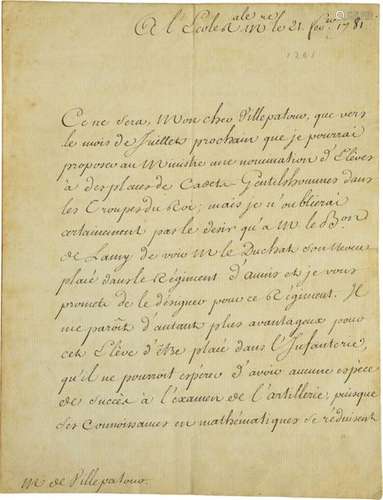 A l'Ecole R.ale M.re le 21. fev.er 1781.
1781
Ce ne sera, Mon cher Villepatour, que vers
le mois de Juillet prochain que je pourrai
proposer au Ministre une nomination d'Elèves
à des places de Cadets Gentilshommes dans
les Troupes du Roi; mais je n'oublierai
certainement pas le désir qu'à M. le B.on
de Lamy de voir M. le Duchat son Neveu
placé dans le Régiment d'Aunis et je vous
promets de le désigner pour ce Régiment. Il
me paroît d'autant plus avantageux pour
cet Elève d'être placé dans l'Infanterie,
qu'il ne pourroit espérer d'avoir aucune espece
de succès à l'examen de l'artillerie; puisque
ses Connoissances en mathématiques se réduisent
M. de Villepatour.